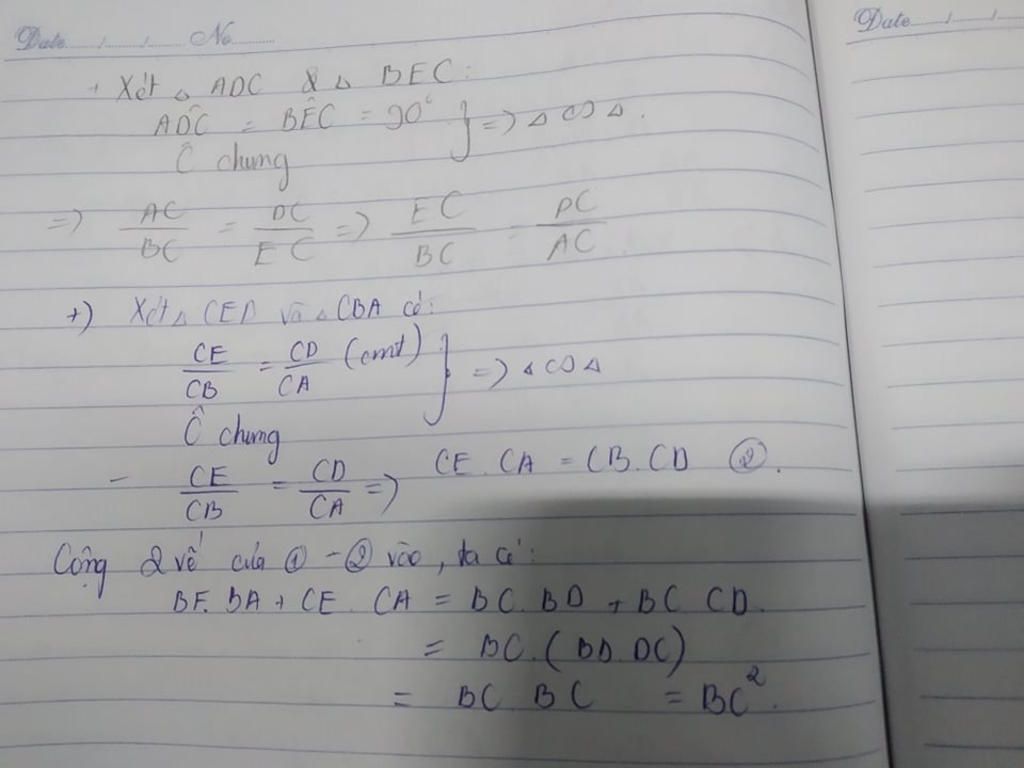 Date / / No
Date / /
+ Xét △ ADC & △ BEC:
AD̂C = BÊC = 90° } => △ ∽ △.
Ĉ chung
=> AC/BC = DC/EC => EC/BC = DC/AC
+) Xét △ CED và △ CBA có:
CE/CB = CD/CA (cmt) } => △ ∽ △
Ĉ chung
- CE/CB = CD/CA => CE. CA = CB. CD ②.
Cộng 2 vế của ① - ② vào, ta có:
BF. BA + CE. CA = BC. BD + BC CD.
= BC. (BD. DC)
= BC BC = BC².